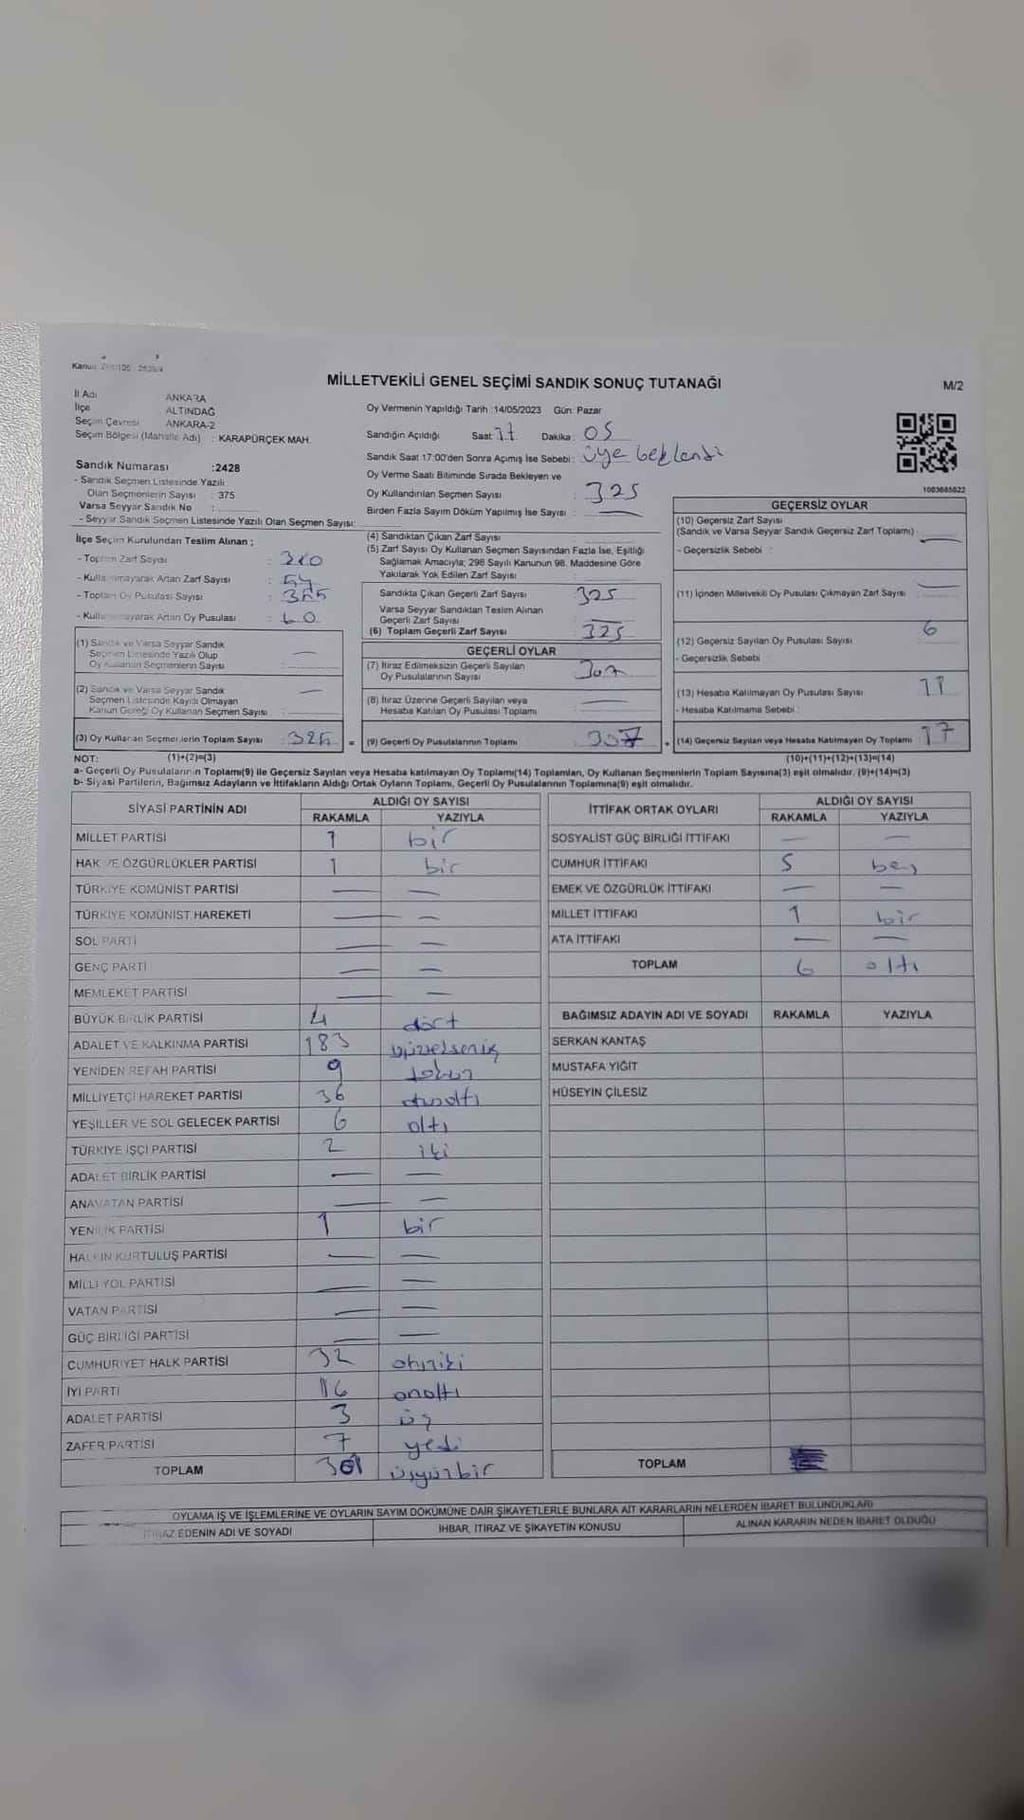 MİLLETVEKİLİ GENEL SEÇİMİ SANDIK SONUÇ TUTANAĞI
M/2
İl Adı ANKARA
İlçe ALTINDAĞ
Seçim Çevresi ANKARA-2
Seçim Bölgesi (Mahalle Adı) : KARAPÜRÇEK MAH.
Oy Vermenin Yapıldığı Tarih :14/05/2023 Gün: Pazar
Sandığın Açıldığı Saat: 17 Dakika: 05
Sandık Saat 17:00'den Sonra Açımış İse Sebebi: üye beklendi
Sandık Numarası :2428
- Sandık Seçmen Listesinde Yazılı
Olan Seçmenlerin Sayısı : 375
Varsa Seyyar Sandık No :
- Seyyar Sandık Seçmen Listesinde Yazılı Olan Seçmen Sayısı:
Oy Verme Saati Bitiminde Sırada Bekleyen ve
Oy Kullandırılan Seçmen Sayısı : 325
Birden Fazla Sayım Döküm Yapılmış İse Sayısı : —
1003665822
İlçe Seçim Kurulundan Teslim Alınan ;
- Toplam Zarf Sayısı : 380
- Kullanılmayarak Artan Zarf Sayısı :
- Toplam Oy Pusulası Sayısı :
- Kullanılmayarak Artan Oy Pusulası : 60
(1) Sandık ve Varsa Seyyar Sandık
Seçmen Listesinde Yazılı Olup
Oy Kullanan Seçmenlerin Sayısı : —
(2) Sandık ve Varsa Seyyar Sandık
Seçmen Listesinde Kayıtlı Olmayan
Kanun Gereği Oy Kullanan Seçmen Sayısı : —
(3) Oy Kullanan Seçmenlerin Toplam Sayısı : 325 =
(4) Sandıktan Çıkan Zarf Sayısı :
(5) Zarf Sayısı Oy Kullanan Seçmen Sayısından Fazla İse, Eşitliği
Sağlamak Amacıyla; 298 Sayılı Kanunun 98. Maddesine Göre
Yakılarak Yok Edilen Zarf Sayısı :
Sandıkta Çıkan Geçerli Zarf Sayısı 325
Varsa Seyyar Sandıktan Teslim Alınan
Geçerli Zarf Sayısı —
(6) Toplam Geçerli Zarf Sayısı 325
GEÇERLİ OYLAR
(7) İtiraz Edilmeksizin Geçerli Sayılan
Oy Pusulalarının Sayısı 307
(8) İtiraz Üzerine Geçerli Sayılan veya
Hesaba Katılan Oy Pusulası Toplamı —
(9) Geçerli Oy Pusulalarının Toplamı 307 +
GEÇERSİZ OYLAR
(10) Geçersiz Zarf Sayısı
(Sandık ve Varsa Seyyar Sandık Geçersiz Zarf Toplamı) : —
- Geçersizlik Sebebi :
(11) İçinden Milletvekili Oy Pusulası Çıkmayan Zarf Sayısı —
(12) Geçersiz Sayılan Oy Pusulası Sayısı 6
- Geçersizlik Sebebi
(13) Hesaba Katılmayan Oy Pusulası Sayısı 11
- Hesaba Katılmama Sebebi :
(14) Geçersiz Sayılan veya Hesaba Katılmayan Oy Toplamı 17
NOT: (1)+(2)=(3) (10)+(11)+(12)+(13)=(14)
a- Geçerli Oy Pusulalarının Toplamı(9) ile Geçersiz Sayılan veya Hesaba katılmayan Oy Toplamı(14) Toplamları, Oy Kullanan Seçmenlerin Toplam Sayısına(3) eşit olmalıdır. (9)+(14)=(3)
b- Siyasi Partilerin, Bağımsız Adayların ve İttifakların Aldığı Ortak Oyların Toplamı, Geçerli Oy Pusulalarının Toplamına(9) eşit olmalıdır.
SİYASİ PARTİNİN ADI ALDIĞI OY SAYISI
RAKAMLA YAZIYLA
MİLLET PARTİSİ 1 bir
HAK VE ÖZGÜRLÜKLER PARTİSİ 1 bir
TÜRKİYE KOMÜNİST PARTİSİ — —
TÜRKİYE KOMÜNİST HAREKETİ — —
SOL PARTİ — —
GENÇ PARTİ — —
MEMLEKET PARTİSİ — —
BÜYÜK BİRLİK PARTİSİ 4 dört
ADALET VE KALKINMA PARTİSİ 183
YENİDEN REFAH PARTİSİ 9 dokuz
MİLLİYETÇİ HAREKET PARTİSİ 36 otuzaltı
YEŞİLLER VE SOL GELECEK PARTİSİ 6 altı
TÜRKİYE İŞÇİ PARTİSİ 2 iki
ADALET BİRLİK PARTİSİ — —
ANAVATAN PARTİSİ — —
YENİLİK PARTİSİ 1 bir
HALKIN KURTULUŞ PARTİSİ — —
MİLLİ YOL PARTİSİ — —
VATAN PARTİSİ — —
GÜÇ BİRLİĞİ PARTİSİ — —
CUMHURİYET HALK PARTİSİ 32 otuziki
İYİ PARTİ 16 onaltı
ADALET PARTİSİ 3 üç
ZAFER PARTİSİ 7 yedi
TOPLAM 301 üçyüzbir
İTTİFAK ORTAK OYLARI ALDIĞI OY SAYISI
RAKAMLA YAZIYLA
SOSYALİST GÜÇ BİRLİĞİ İTTİFAKI — —
CUMHUR İTTİFAKI 5 beş
EMEK VE ÖZGÜRLÜK İTTİFAKI — —
MİLLET İTTİFAKI 1 bir
ATA İTTİFAKI — —
TOPLAM 6 altı
BAĞIMSIZ ADAYIN ADI VE SOYADI RAKAMLA YAZIYLA
SERKAN KANTAŞ
MUSTAFA YİĞİT
HÜSEYİN ÇİLESİZ
TOPLAM
OYLAMA İŞ VE İŞLEMLERİNE VE OYLARIN SAYIM DÖKÜMÜNE DAİR ŞİKAYETLERLE BUNLARA AİT KARARLARIN NELERDEN İBARET BULUNDUKLARI
İTİRAZ EDENİN ADI VE SOYADI İHBAR, İTİRAZ VE ŞİKAYETİN KONUSU ALINAN KARARIN NEDEN İBARET OLDUĞU